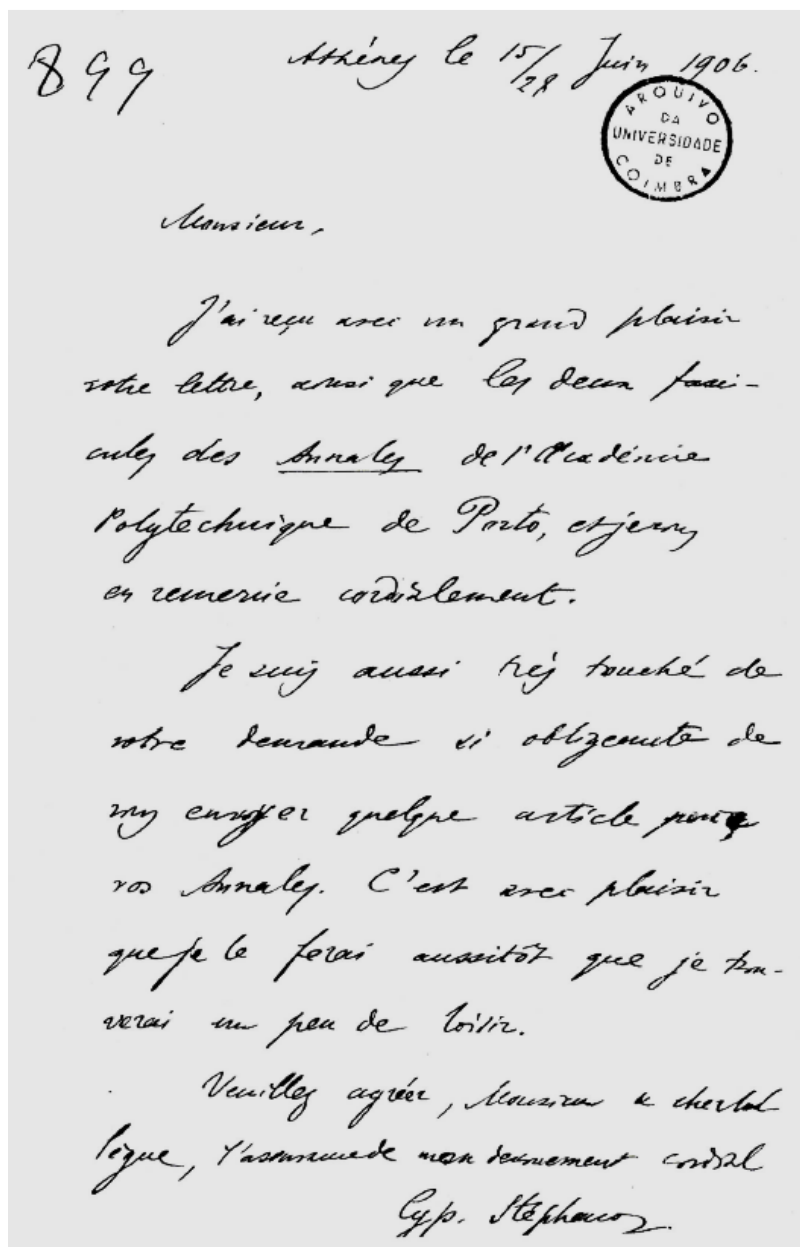 899
Athènes le 15/28 Juin 1906.
ARQUIVO
DA
UNIVERSIDADE
DE
COIMBRA
Monsieur,
J'ai reçu avec un grand plaisir
votre lettre, ainsi que les deux fasci-
cules des Annales de l'Académie
Polytechnique de Porto, et je vous
en remercie cordialement.
Je suis aussi très touché de
votre demande si obligeante de
vous envoyer quelque article pour
vos Annales. C'est avec plaisir
que je le ferai aussitôt que je trou-
verai un peu de loisir.
Veuillez agréer, Monsieur et cher col
lègue, l'assurance de mon dévouement cordial
Cyp. Stéphanos